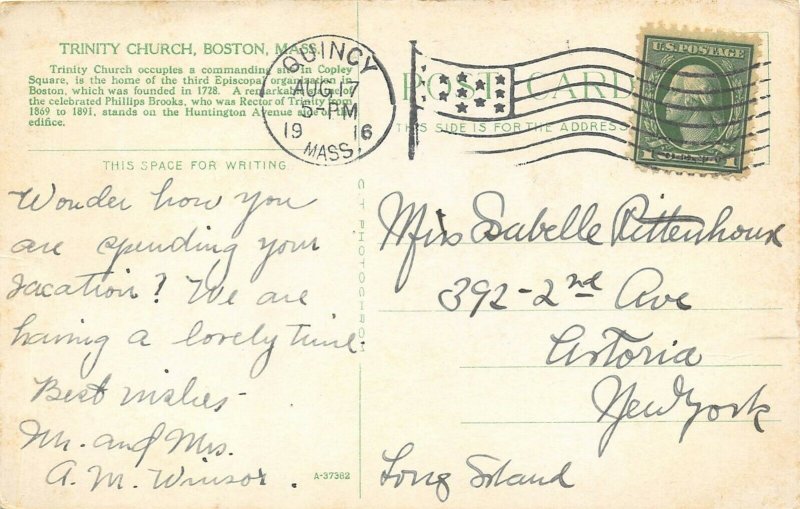 TRINITY CHURCH, BOSTON, MASS.
Trinity Church occupies a commanding site in Copley
Square, is the home of the third Episcopal organization in
Boston, which was founded in 1728. A remarkable
the celebrated Phillips Brooks, who was Rector of Trinity from
1869 to 1891, stands on the Huntington Avenue
edifice.
QUINCY
AUG 7
5-PM
19 16
MASS.
POST CARD
THIS SIDE IS FOR THE ADDRESS
U.S. POSTAGE
1 1
THIS SPACE FOR WRITING
Wonder how you
are spending your
vacation? We are
having a lovely time.
Best wishes -
Mr. and Mrs.
A. M. Winsor.
A-37362
C T PHOTOCHROM
Miss Isabelle Rittenhouse
392-2nd Ave
Astoria
New York
Long Island